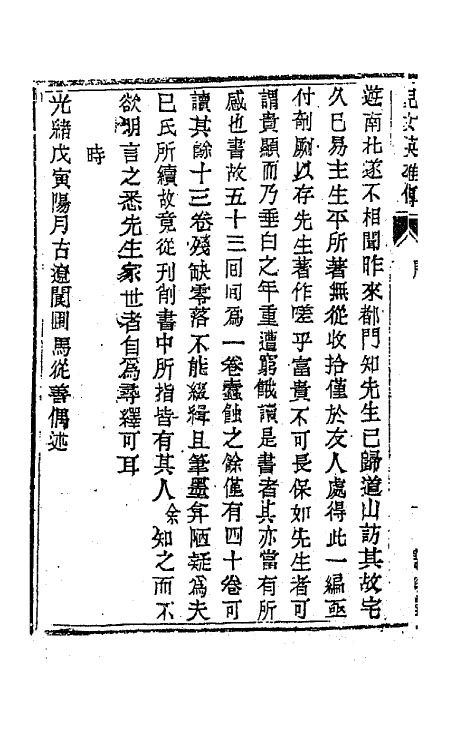 兒女英雄傳
序
遊南北遂不相聞昨來都門知先生已歸道山訪其故宅
久已易主生平所著無從收拾僅於友人處得此一編亟
付剞劂以存先生著作嗟乎富貴不可長保如先生者可
謂貴顯而乃垂白之年重遭窮餓讀是書者其亦當有所
感也書故五十三回回爲一卷蠹蝕之餘僅有四十卷可
讀其餘十三卷殘缺零落不能綴緝且筆墨弇陋疑爲夫
已氏所續故竟從刊削書中所指皆有其人余知之而不
欲明言之悉先生家世者自爲尋繹可耳
時
光緒戊寅陽月古遼閬圃馬從善偶述